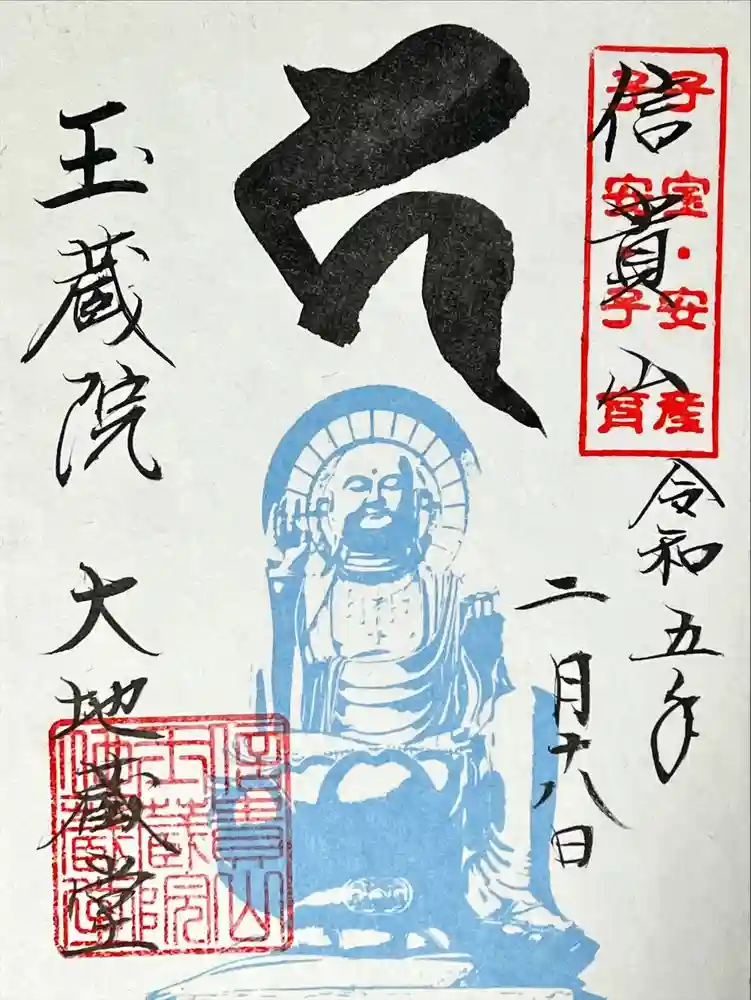 信貴山
子宝・安産
子安子育
令和五年
二月十八日
𑖮
玉蔵院 大地蔵堂
信貴山
玉蔵院